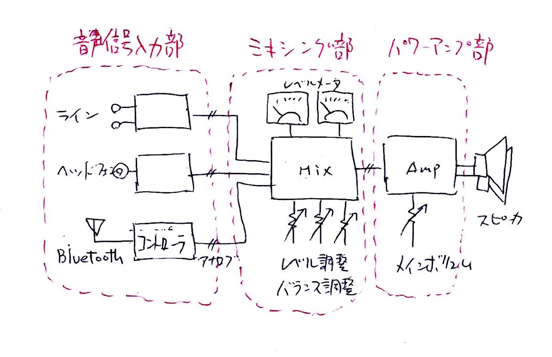 音声信号入力部
ミキシング部
パワーアンプ部
レベルメータ
ライン
ヘッドフォン
Mix
Amp
スピーカ
Bluetooth
コントローラ
アナログ
レベル調整
バランス調整
メインボリューム